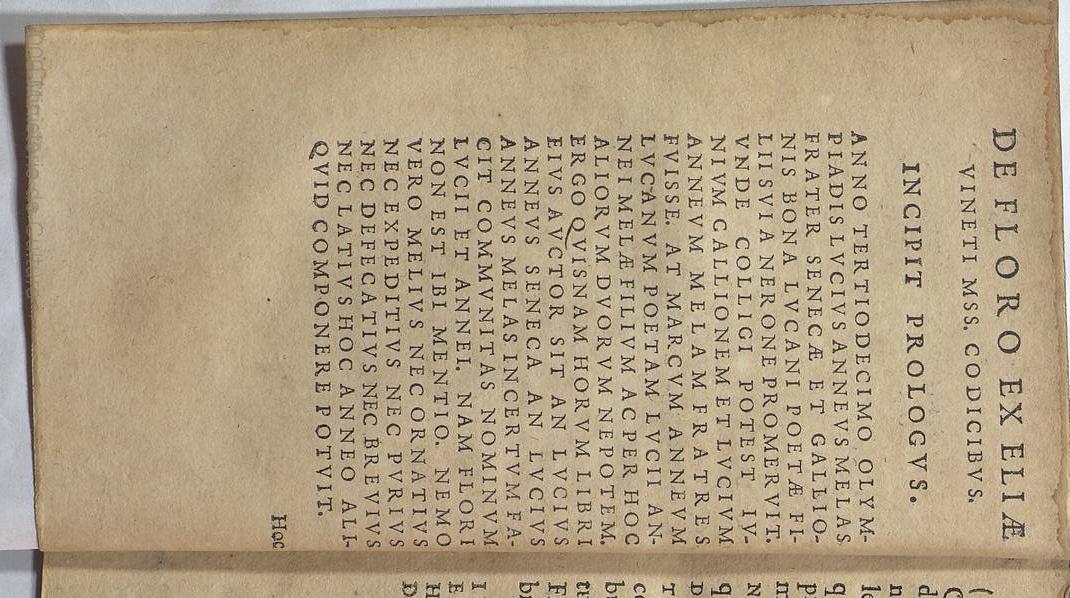 DE FLORO EX ELIÆ
VINETI MSS. CODICIBVS.
INCIPIT PROLOGVS.
ANNO TERTIODECIMO OLYM-
PIADIS LVCIVS ANNEVS MELAS
FRATER SENECÆ ET GALLIO-
NIS BONA LVCANI POETÆ FI-
LII SVI A NERONE PROMERVIT.
VNDE COLLIGI POTEST IV-
NIVM CALLIONEM ET LVCIVM
ANNEVM MELAM FRATRES
FVISSE. AT MARCVM ANNEVM
LVCANVM POETAM LVCII AN-
NEI MELÆ FILIVM AC PER HOC
ALIORVM DVORVM NEPOTEM.
ERGO QVISNAM HORVM LIBRI
EIVS AVCTOR SIT AN LVCIVS
ANNEVS SENECA AN LVCIVS
ANNEVS MELAS INCERTVM FA-
CIT COMMVNITAS NOMINVM
LVCII ET ANNEI. NAM FLORI
NON EST IBI MENTIO. NEMO
VERO MELIVS NEC ORNATIVS
NEC EXPEDITIVS NEC PVRIVS
NEC DEFECATIVS NEC BREVIVS
NEC LATIVS HOC ANNEO ALI-
QVID COMPONERE POTVIT.
Hoc